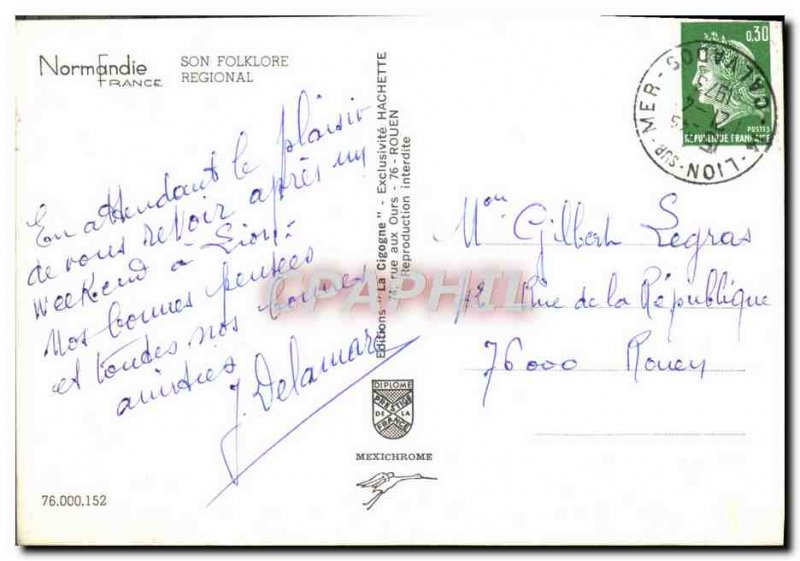 Normandie
FRANCE
SON FOLKLORE
REGIONAL
En attendant le plaisir
de vous revoir après un
weekend à Lion.
Nos bonnes pensées
et toutes nos bonnes
amitiés
J. Delamare
76.000.152
Editions "La Cigogne" - Exclusivité HACHETTE
74, rue aux Ours - 76 - ROUEN
Reproduction interdite
DIPLOME
PRESTIGE
DE LA
FRANCE
MEXICHROME
CAPHIL
0,30
POSTES
REPUBLIQUE FRANÇAISE
LION-SUR-MER - CALVADOS
1973
Mon Gilbert Legras
72 Rue de la République
76000 Rouen